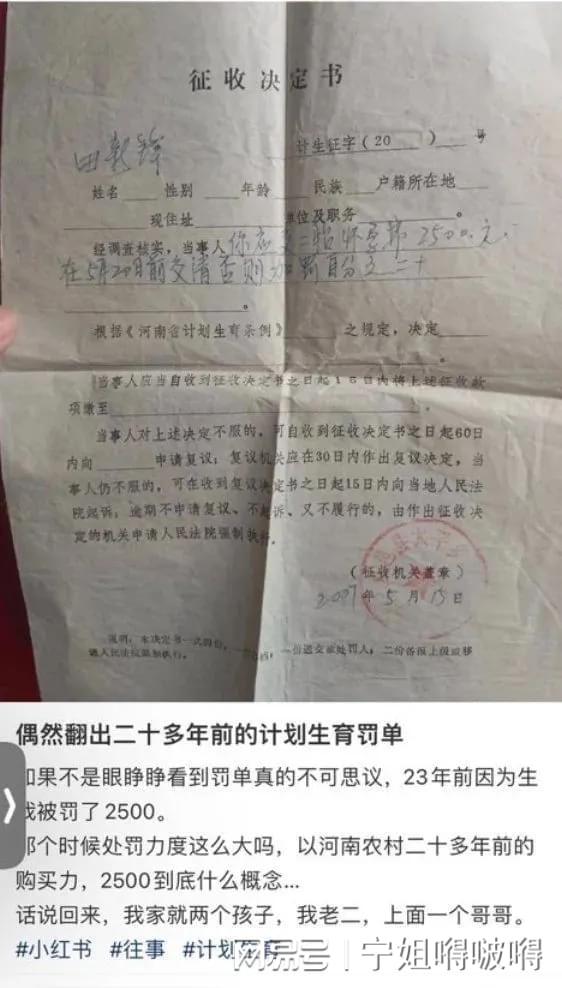 征收决定书
计生征字(20 ) 号
姓名 性别 年龄 民族 户籍所在地
现住址 单位及职务 。
经调查核实，当事人你应交二胎怀孕费2500.元
在5月20日前交清否则加罚百分之二十
。
根据《河南省计划生育条例》 之规定，决定
当事人应当自收到征收决定书之日起15日内将上述征收款
项缴至 。
当事人对上述决定不服的，可自收到征收决定书之日起60日
内向 申请复议；复议机关应在30日内作出复议决定，当
事人仍不服的，可在收到复议决定书之日起15日内向当地人民法
院起诉；逾期不申请复议、不起诉、又不履行的，由作出征收决
定的机关申请人民法院强制执行。
(征收机关盖章)
年5月15日
说明：本决定书一式四份，一份送交被处罚人；二份备报上级或移
送人民法院强制执行。
偶然翻出二十多年前的计划生育罚单
如果不是眼睁睁看到罚单真的不可思议，23年前因为生
我被罚了2500。
那个时候处罚力度这么大吗，以河南农村二十多年前的
购买力，2500到底什么概念...
话说回来，我家就两个孩子，我老二，上面一个哥哥。
#小红书 #往事 #计划生育
网易号 | 宁姐嘚啵嘚